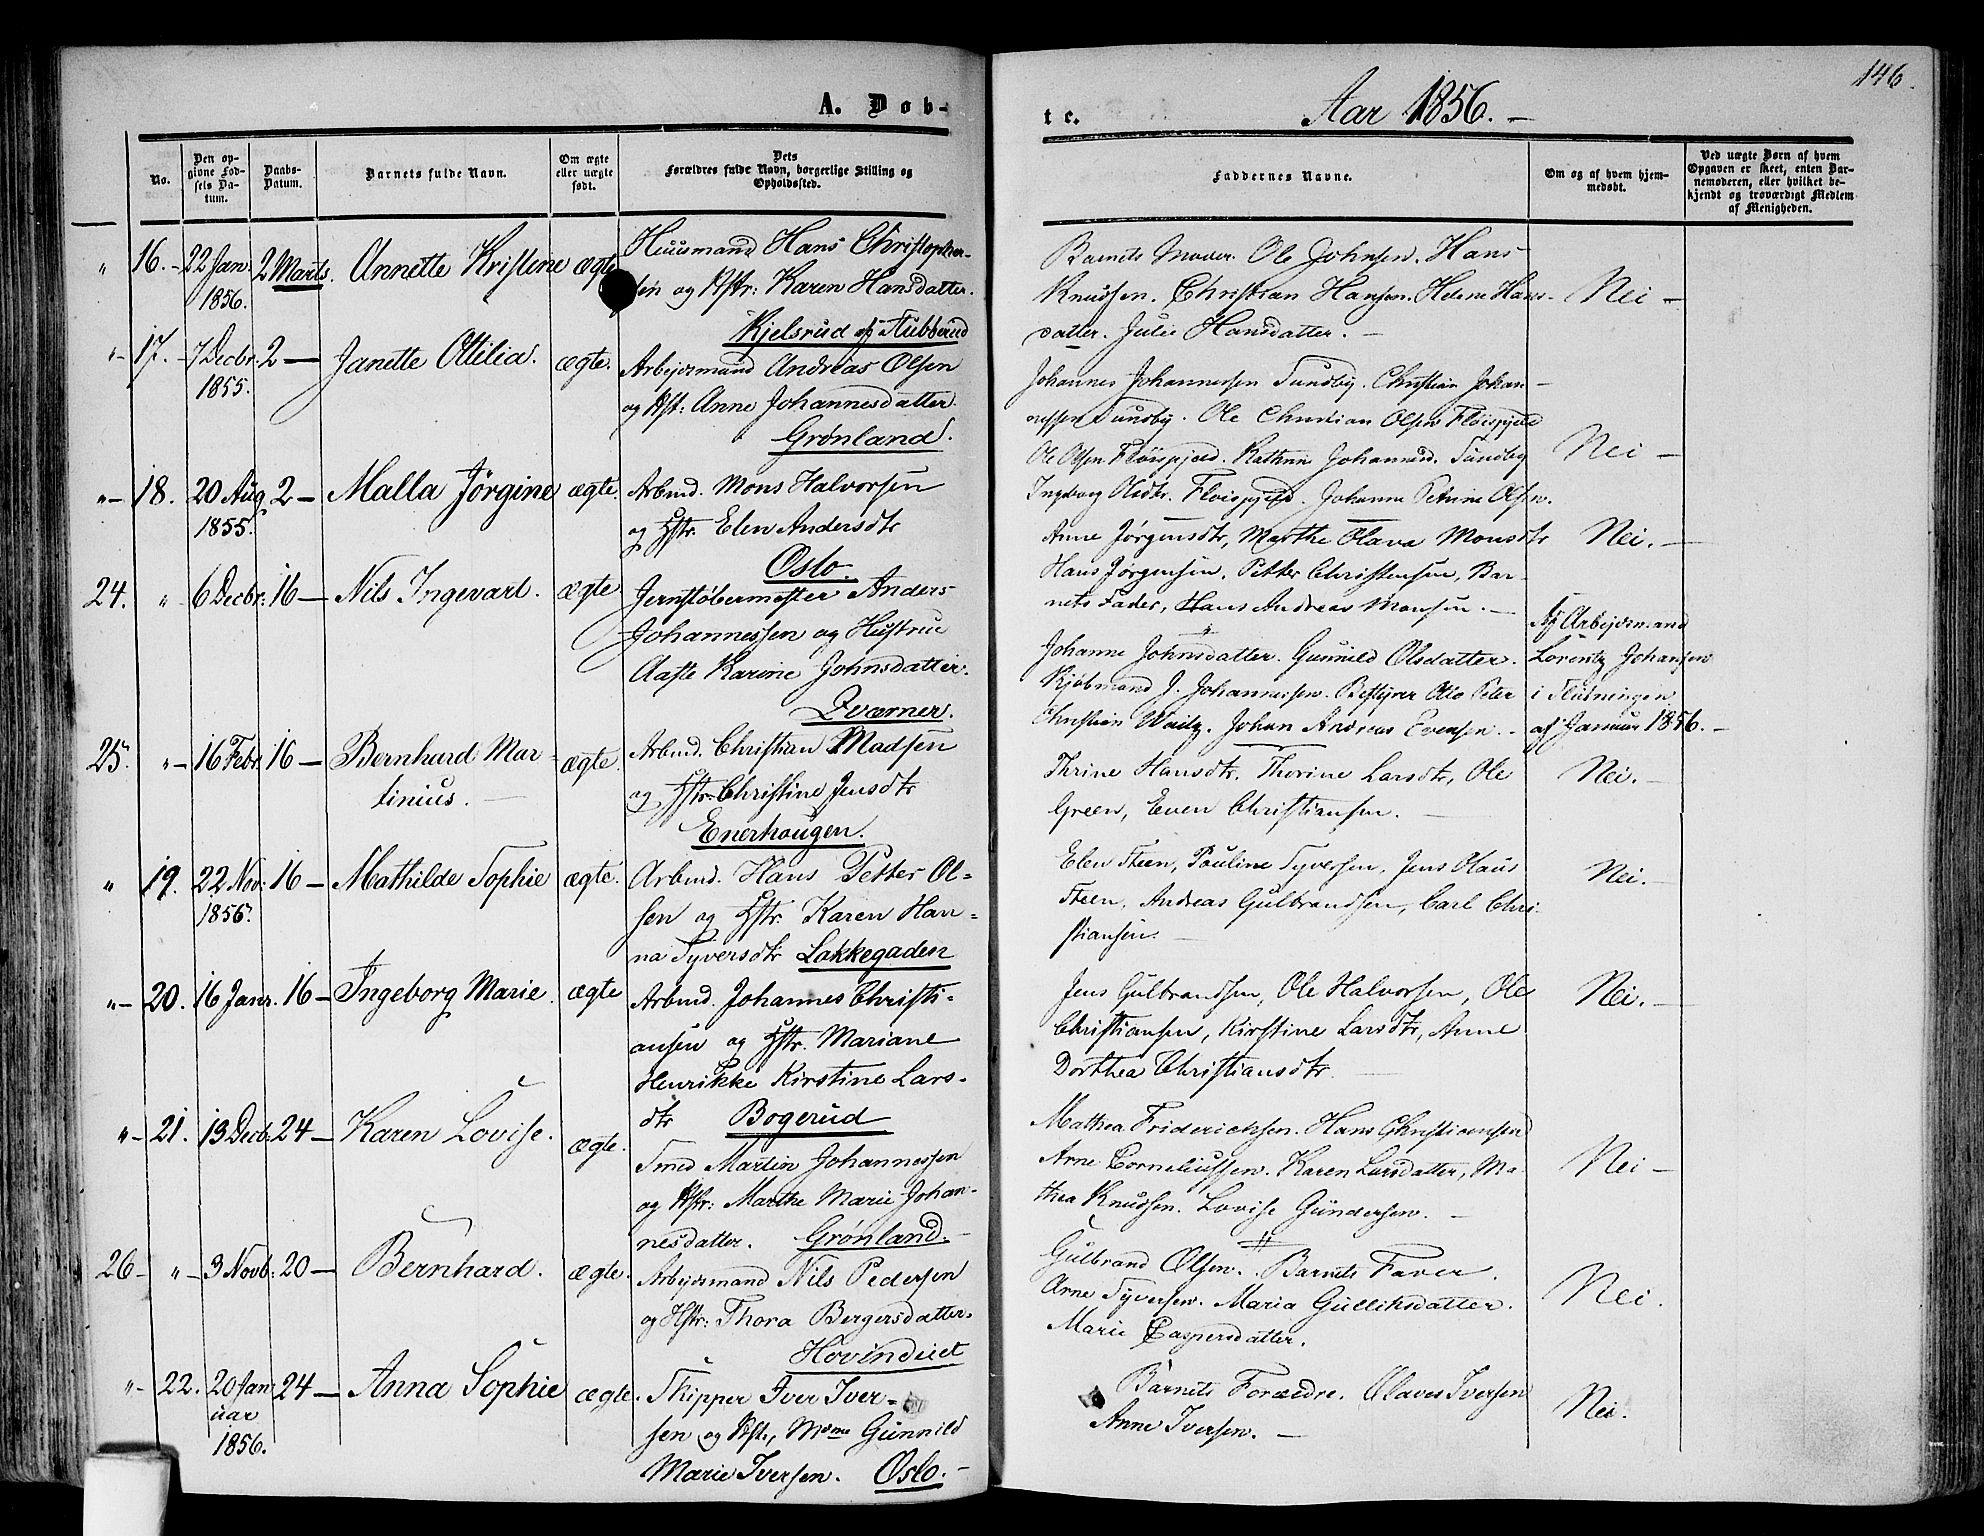 146.
A. Døb-
te.
Aar 1856. -
No.
Den op-
givne Fød-
sels Da-
tum.
Daabs-
Datum.
Barnets fulde Navn.
Om ægte
eller uægte
født.
Dets
Forældres fulde Navn, borgerlige Stilling og
Opholdssted.
Faddernes Navne.
Om og af hvem hjem-
medøbt.
Ved uægte Børn af hvem
Opgaven er skeet, enten Bar-
nemoderen, eller hvilket be-
kjendt og troværdigt Medlem
af Menigheden.
" 16. - 22 Jan. 2 Marts. Annette Kristine ægte
1856.
Huusmand Hans Christopher-
sen og Hstr: Karen Hansdatter.
Kjelsrud af Aubberud
Barnets Moder. Ole Johnsen. Hans
Knudsen. Christian Hansen. Helene Hans-
datter. Julie Hansdatter. -
Nei -
" 17. - 7 Decbr. 2 - Janette Otilia. ægte.
1855.
Arbejdsmand Andreas Olsen
og Hst: Anne Johannesdatter
Grønland.
Johannes Johannessen Sundby. Christian Johan-
nessen Sundby. Ole Christian Olsen Fløispjeld
Ole Olsen Fløispjeld. Kathrine Johannesd. Sundby
Ingeborg Olsdtr. Fløispjeld. Johanne Petrine Olsen.
Nei -
" 18. 20 Aug. 2 - Malla Jørgine ægte
1855.
Arbmd. Mons Halvorsen
og Hstr. Elen Andersdtr
Oslo.
Anne Jørgensdtr, Marthe Olava Monsdtr
Hans Jørgensen, Petter Christensen, Bar-
nets Fader, Hans Andreas Monsen. -
Nei. -
24. " 6 Decbr: 16 - Nils Ingevart. ægte
Jernstøbermester Anders
Johannessen og Hustrue
Aaste Karine Johnsdatter.
Qværner.
Johanne Johnsdatter. Gunnild Olsdatter.
Kjøbmand J. Johannessen. Bestyrer Otto Peter
Christian Waitz. Johan Andreas Evensen. -
Af Arbejdsmand
Lorentz Johansen
i Slutningen
af Januar 1856. -
25. " - 16 Febr. 16 - Bernhard Mar-
tinius. -
ægte.
Arbmd. Christian Madsen
og Hstr. Christine Jensdtr
Enerhougen.
Thrine Hansdtr. Thorine Larsdtr, Ole
Green, Even Christiansen. -
Nei. -
" 19. 22 Nov: 16 - Mathilde Sophie ægte.
1856.
Arbmd. Hans Petter Ol-
sen og Hstr. Karen Han-
na Syversdtr Lakkegaden
Elen Steen, Pauline Syversen, Jens Olaus
Steen, Andreas Gulbrandsen, Carl Chri-
stiansen. -
Nei. -
" 20. 16 Janr. 16 - Ingeborg Marie. ægte
Arbmd. Johannes Christi-
ansen og Hstr. Mariane
Henrikke Kirstine Lars-
dtr Bogerud
Jens Gulbrandsen, Ole Halvorsen, Ole
Christiansen, Kirstine Larsdtr, Anne
Dorthea Christiansdtr.
Nei. -
" 21. 13 Decb. 24 - Karen Lovise. ægte.
Smed Martin Johannessen
og Hstr: Marthe Marie Johan-
nesdatter. Grønland. -
Mathea Friderichsen. Hans Christiansen
Arne Corneliussen. Karen Larsdatter, Ma-
thea Knudsen. Lovise Gundersen. -
Nei -
26 - " - 3 Novb: 20 - Bernhard. ægte.
Arbejdsmand Nils Pedersen
og Hstr: Thora Bergersdatter.
Hovindeiet
Gulbrand Olsen. Barnets Fader.
Arne Syversen. Maria Gulliksdatter.
Marie Caspersdatter.
Nei.
" 22. 20 Jan 24 - Anna Sophie ægte.
uar
1856.
Skipper Iver Iver-
sen og Hst., Mdme Gunnild
Marie Iversen. Oslo. -
Barnets Forældre. Olaves Iversen
Anne Iversen. -
Nei.